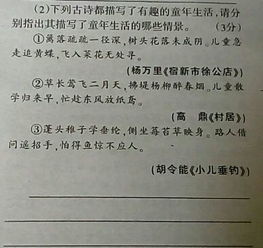 (2)下列古诗都描写了有趣的童年生活,请分
别指出其描写了童年生活的哪些情景。 (3分)
①篱落疏疏一径深,树头花落未成阴。儿童急
走追黄蝶,飞入菜花无处寻。
(杨万里《宿新市徐公店》)
②草长莺飞二月天,拂堤杨柳醉春烟。儿童散
学归来早,忙趁东风放纸鸢。
(高 鼎《村居》)
③蓬头稚子学垂纶,侧坐莓苔草映身。路人借
问遥招手,怕得鱼惊不应人。
(胡令能《小儿垂钓》)